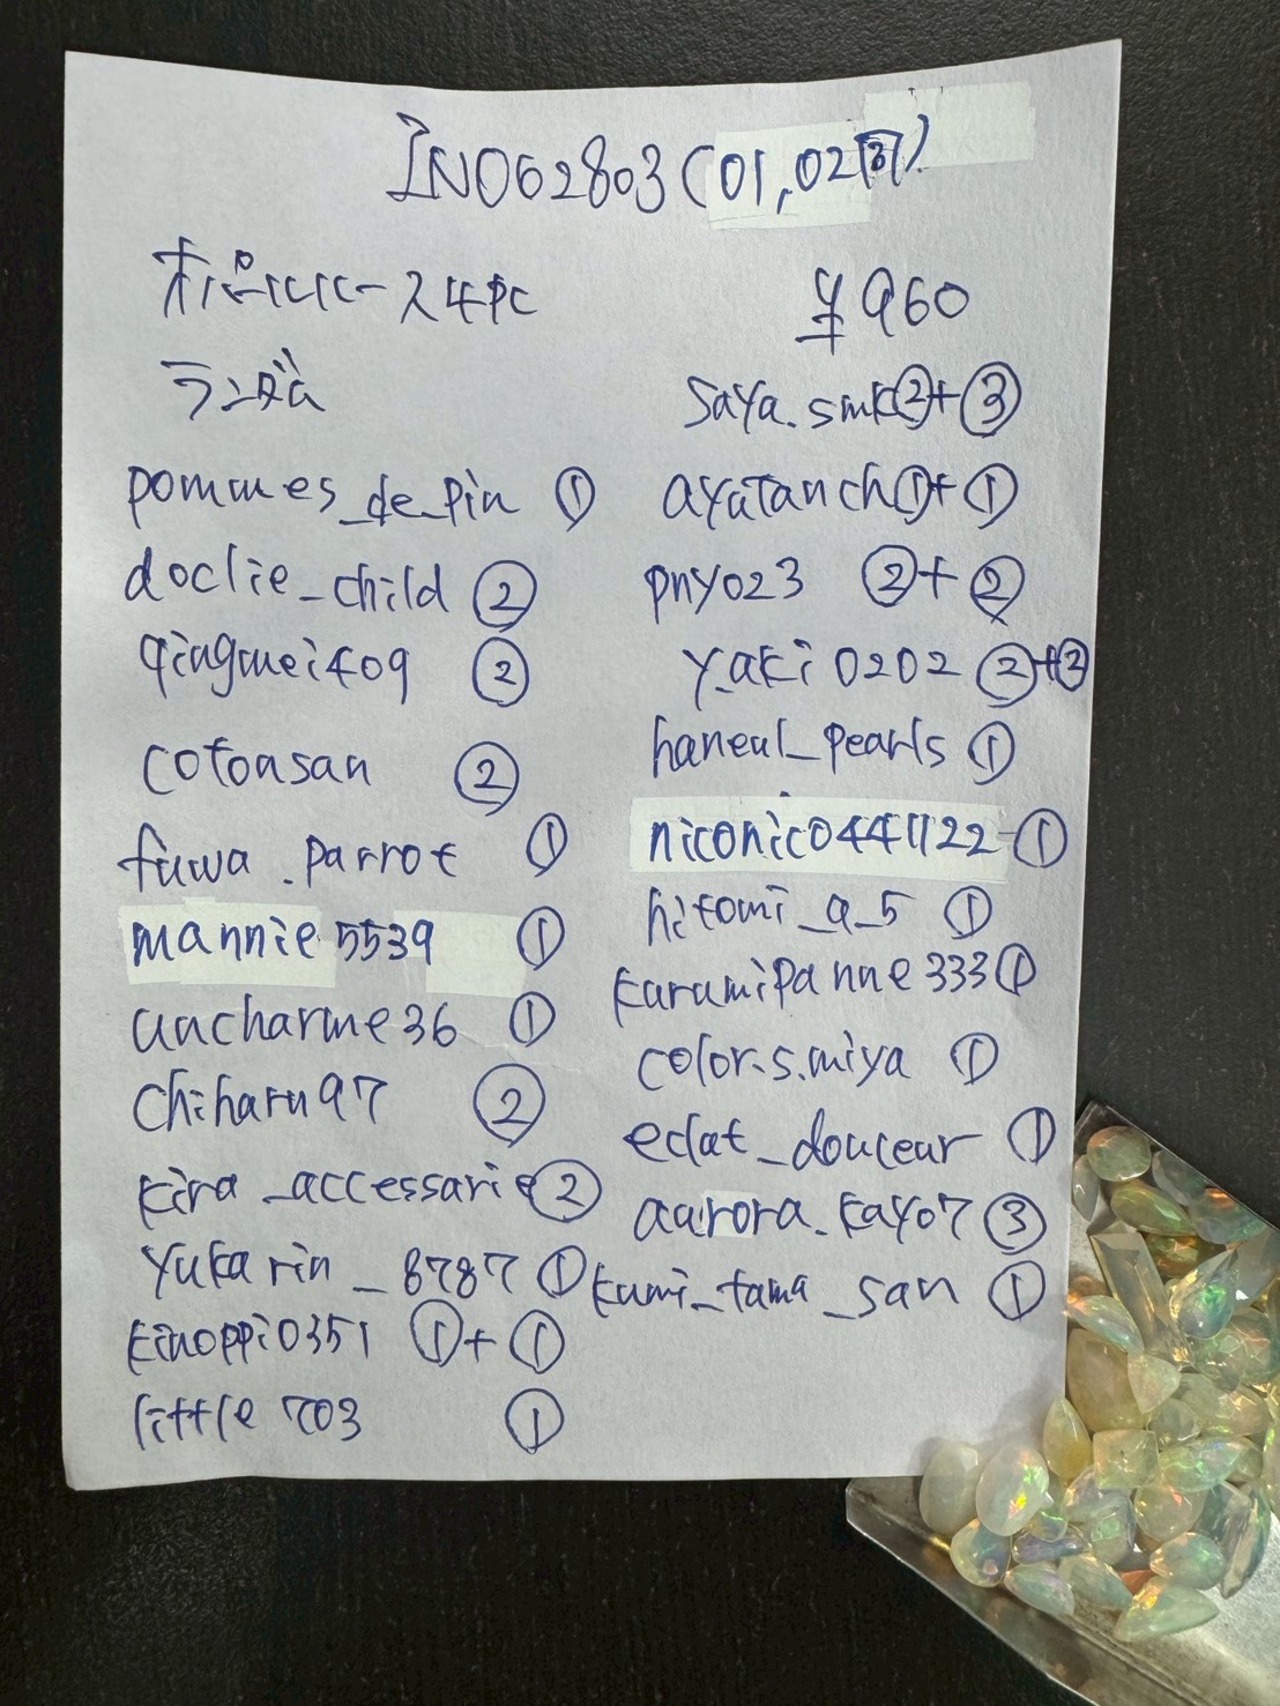 IN062803(01,02)
オパールルース4PC
¥960
ランダム
pommes_de_pin ①
doclie_child ②
qingmei409 ②
cotoasan ②
fuwa.parrot ①
mannie5539 ①
uncharme36 ①
chiharu97 ②
kira_accessarie ②
yukarin_8787 ①
kinoppi0351 ①+①
little703 ①
saya.smk②+③
ayatanch①+①
pnyo23 ②+②
y.aki0202 ②+②
haneul_pearls ①
niconico441122-①
hitomi_a_5 ①
karamipanne333①
color.s.miya ①
eclat_douceur ①
aurora.kayo7 ③
kumi_tama_san ①